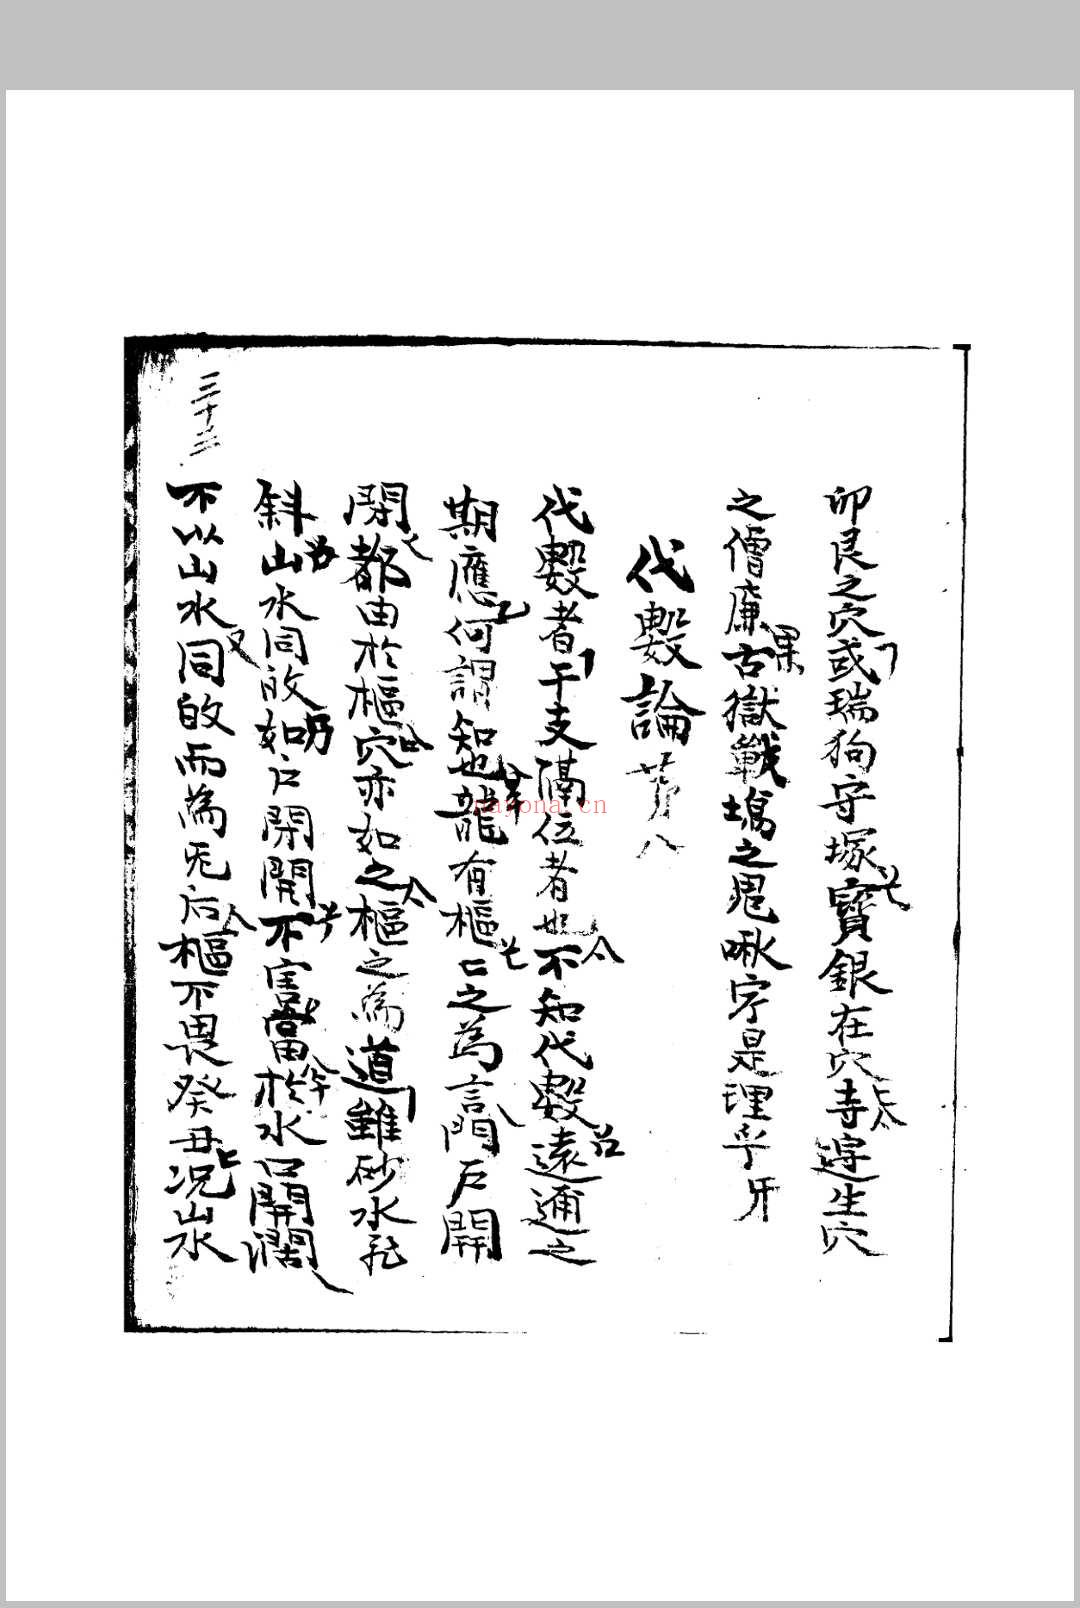 卯艮之穴或瑞狗守塚寶銀在穴寺邊生穴
之僧廉古獄戰塲之鬼啾字是理乎牙
代數論 第八
代數者干支隔位者也不知代數遠邇之
期應何謂知也龍有樞匕之為言門戶開
閉都由於樞穴亦如之樞之為道雖砂水
斜山水同故如戶閉開不害當於水口開濶
不以山水同的而為无后樞不畏癸丑况山水
三十二
nayona.cn